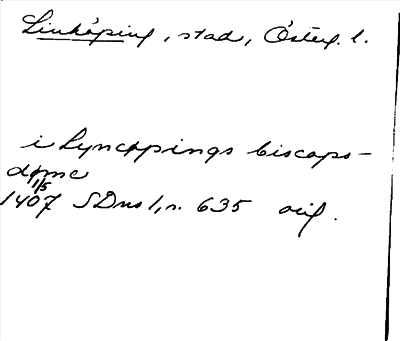 Linköping, stad, Österg. l.
i Lyncopings biscops-
döme
1/5
1407 SDns 1, s. 635 orig.